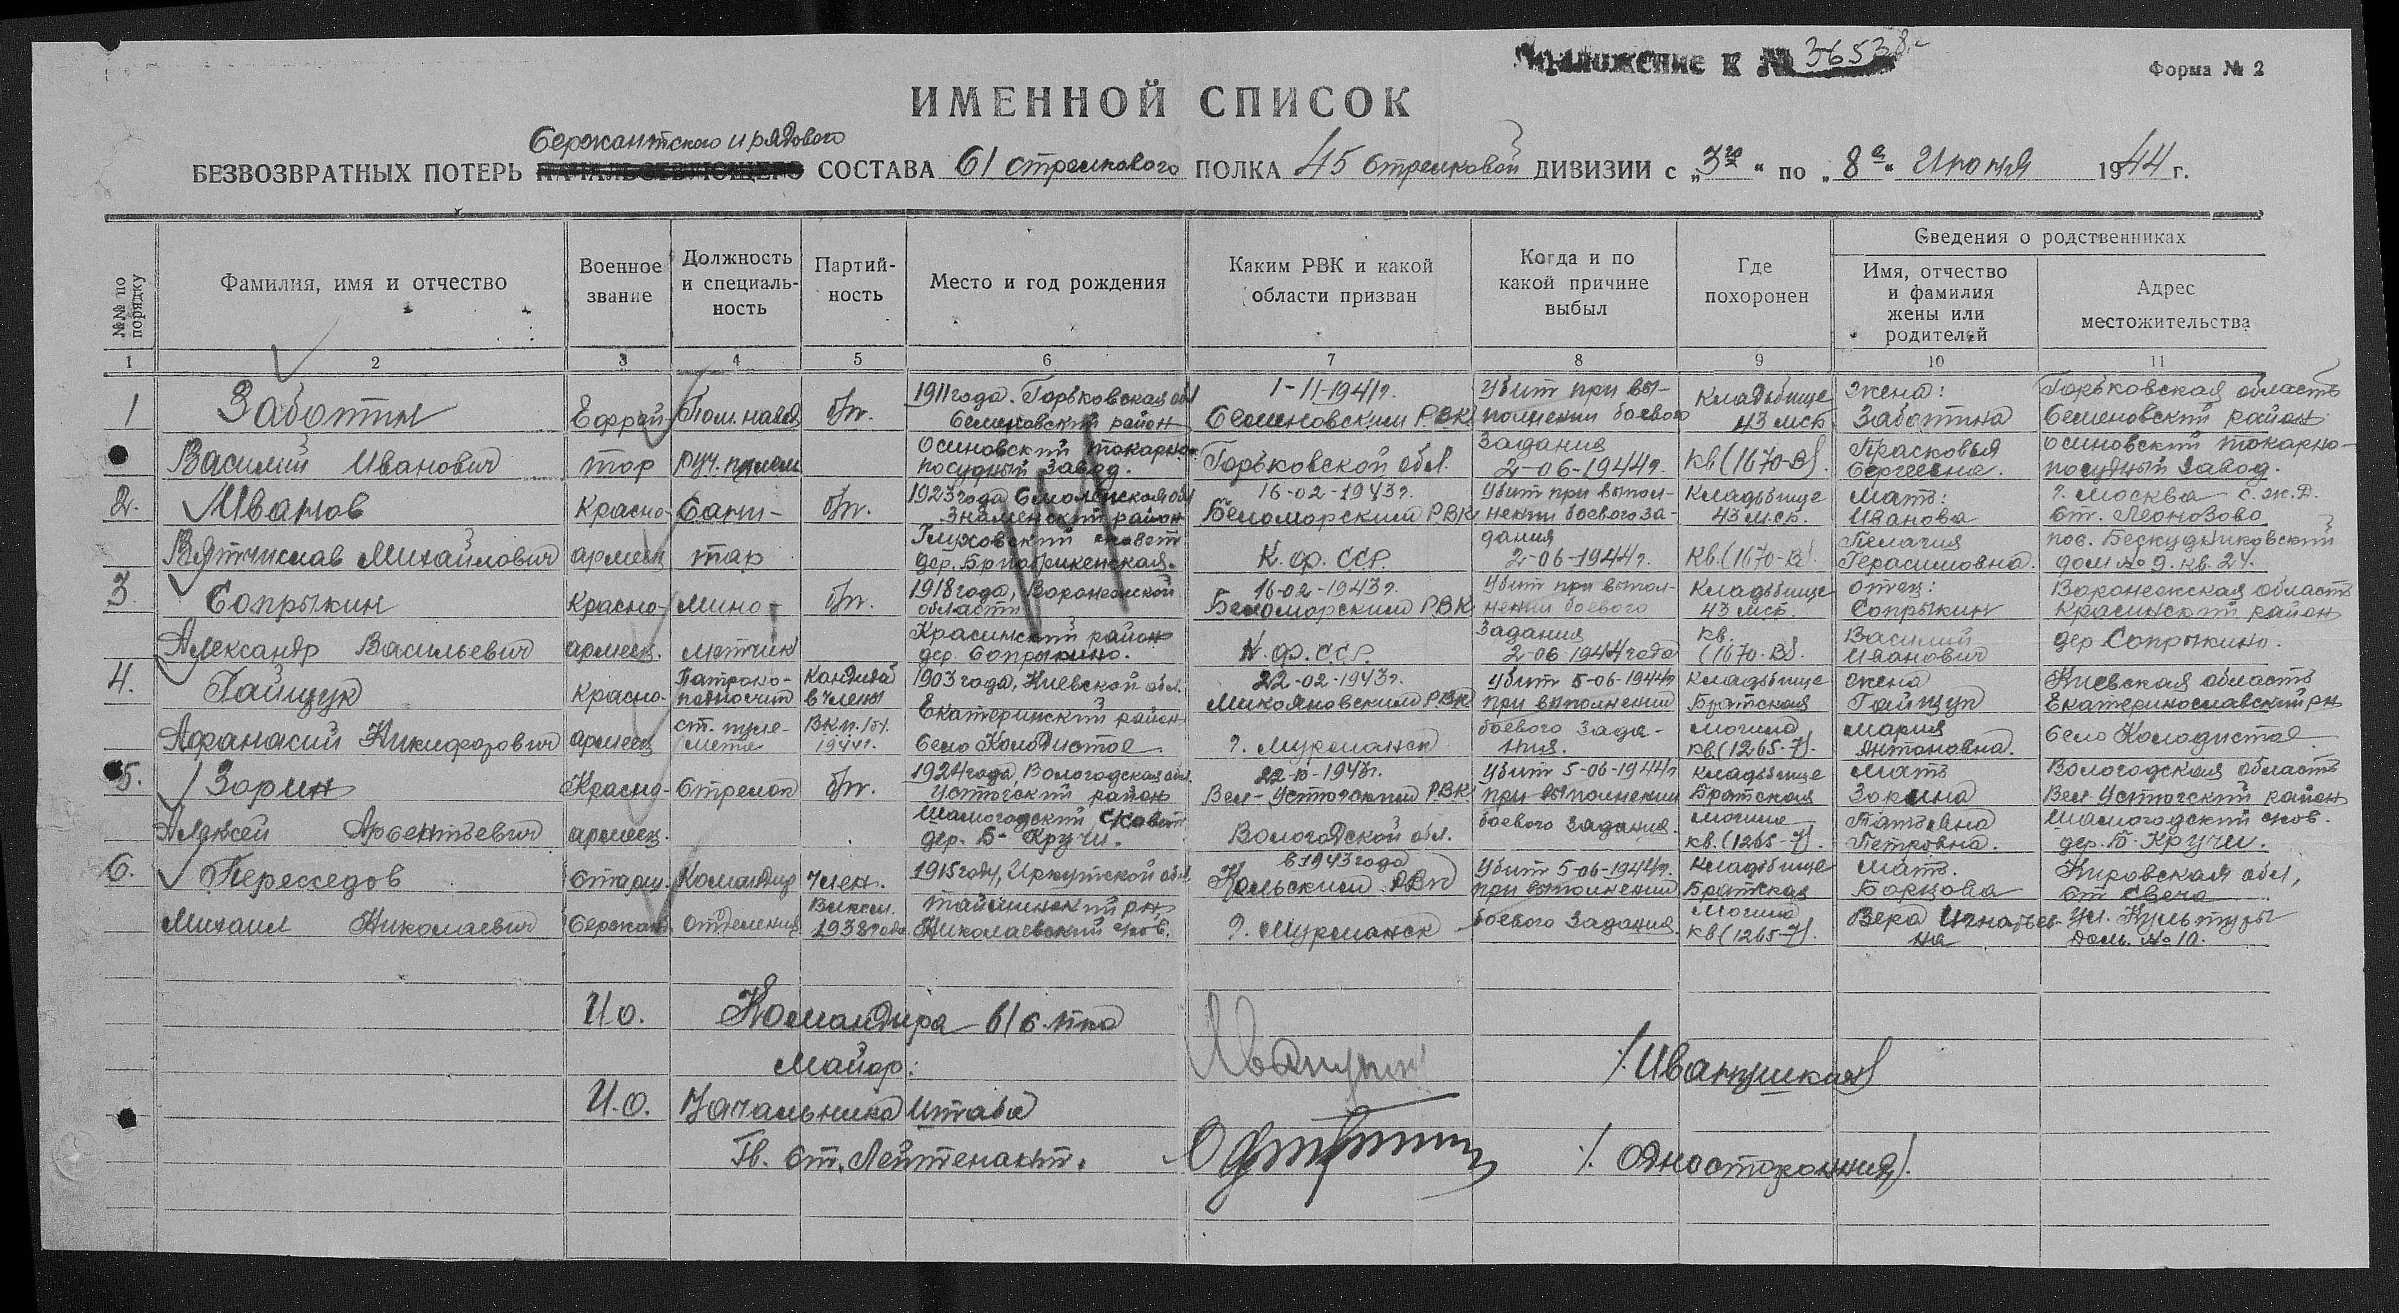 Приложение к № 36538
Форма № 2
ИМЕННОЙ СПИСОК
Сержантского и рядового
БЕЗВОЗВРАТНЫХ ПОТЕРЬ НАЧАЛЬСТВУЮЩЕГО СОСТАВА 61 стрелкового ПОЛКА 45 стрелковой ДИВИЗИИ с „3го“ по „8е“ Июня 1944 г.
№№ по порядку
Фамилия, имя и отчество
Военное звание
Должность и специальность
Партийность
Место и год рождения
Каким РВК и какой области призван
Когда и по какой причине выбыл
Где похоронен
Сведения о родственниках
Имя, отчество и фамилия жены или родителей
Адрес местожительства
1 2 3 4 5 6 7 8 9 10 11
1 Заботин Василий Иванович
Ефрейтор
Пом. навод руч. пулем
б/п.
1911 года. Горьковская обл Семеновский район Осиновский токарно-посудный завод.
1-11-1941г. Семеновским РВК Горьковской обл.
Убит при выполнении боевого задания 2-06-1944г.
Кладбище 43 мсб кв (1670-В).
жена: Заботина Прасковья Сергеевна.
Горьковская область Семеновский район Осиновский токарно-посудный завод.
2. Иванов Вятчислав Михайлович
Красноармеец
Санитар
б/п.
1923 года Смоленская обл Знаменский район Глуховский совет дер.
16-02-1943г. Беломорским РВК К. ф. ССР.
Убит при выполнении боевого задания 2-06-1944г.
Кладбище 43 мсб. кв. (1670-В).
Мать: Иванова Пелагия Герасимовна.
г. Москва с. ж. д. ст. Леонозово пос. Бескудниковский дом № 9. кв. 24.
3. Сопрыкин Александр Васильевич
Красноармеец.
Минометчик
б/п.
1918 года, Воронежской области Красинский район дер. Сопрыкино.
16-02-1943г. Беломорским РВК К. ф. ССР.
Убит при выполнении боевого задания 2-06 1944 года
Кладбище 43 мсб. кв. (1670-В).
отец: Сопрыкин Василий Иванович
Воронежская область Красинский район дер Сопрыкино.
4. Гайщук Афанасий Никифорович
Красноармеец
Патроноподносчит ст. пулемета
Кандидат в члены ВКП/б/. 1944г.
1903 года, Киевской обл. Екатеринский район село Колодистое
22-02-1943г. Микояновским РВК г. Мурманск
Убит 5-06-1944г при выполнении боевого задания.
Кладбище Братская могила кв. (1265-7).
жена Гайщук Мария Антоновна.
Киевская область Екатеринославский рн село Колодистое
5. Зорин Алексей Арсентьевич
Красноармеец.
Стрелок
б/п.
1924 года, Вологодская обл. Устюгский район Шамогодский совет дер. Б-Кручи.
22-10-1943г. Вел-Устюгский РВК Вологодской обл.
Убит 5-06-1944г при выполнении боевого задания.
Кладбище Братская могила кв. (1265-7).
Мать Зорина Татьяна Петровна.
Вологодская область Вел Устюгский район Шамогодский сов. дер. Б-Кручи.
6. Переседов Михаил Николаевич
Старш. Сержант
Командир отделения
Член. 1938 года
1915 году, Иркутской обл. Тайшинский рн. Николаевский сов.
в 1943 года Кольским РВК г. Мурманск
Убит 5-06-1944г. при выполнении боевого задания
Кладбище Братская могила кв (1265-7).
Мать. Борцова Вера Игнатьевна
Кировская обл, ст Свеча ул. Культуры Дом. № 10.
И.о. Командира 61 с. пка
Майор: /Иванушкин/
И.о. Начальника Штаба
Гв. Ст. Лейтенант. /Односторонний/.